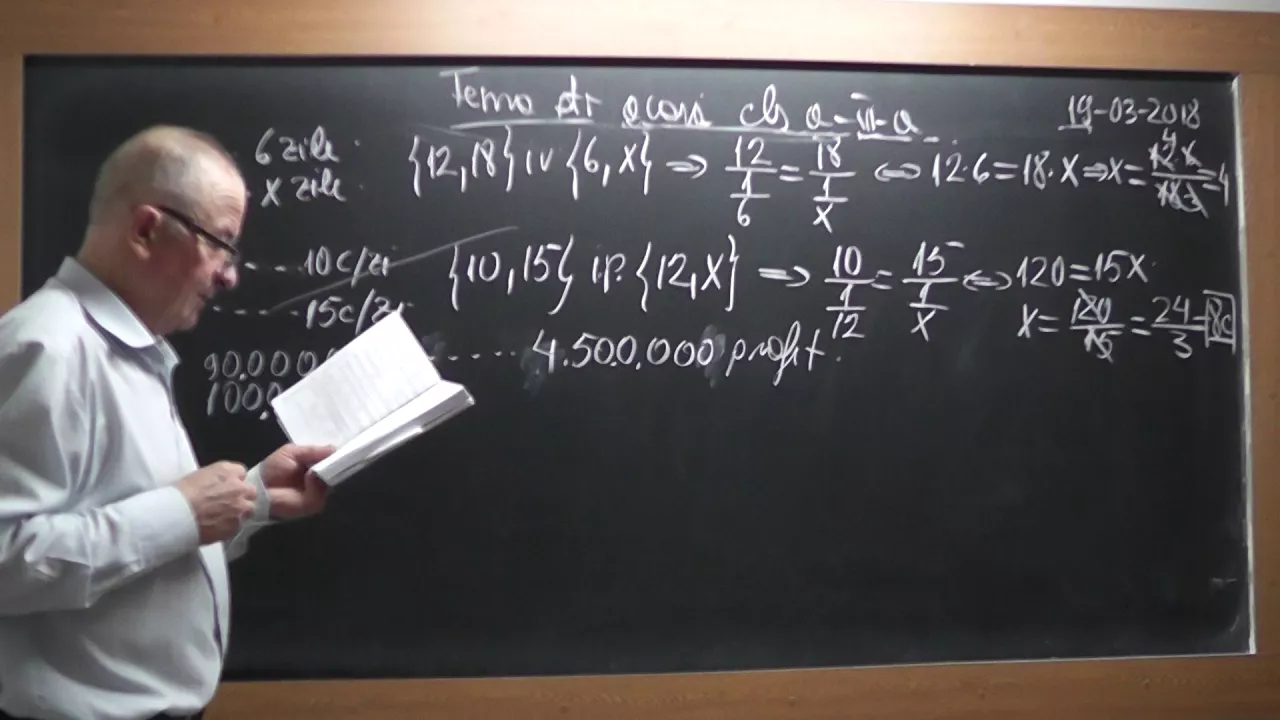 Tema de acasă cls a-VI-a
19-03-2018
6 zile
x zile
{12,18} iv {6,x} ⇒ 12/(1/6) = 18/(1/x) ⇔ 12·6=18·x ⇒ x = =4
10c/zi
15c/zi
{10,15} i.p. {12,x} ⇒ 10/(1/12) = 15/(1/x) ⇔ 120=15x
x = 120/15 = 24/3 = 8c
90.000 ..... 4.500.000 profit.
100.